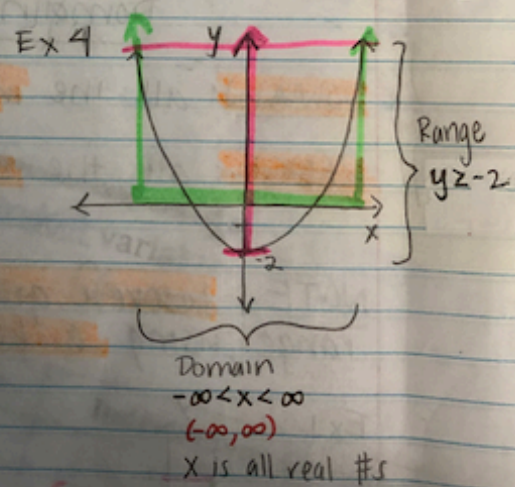 Ex 4
y
Range
y≥-2
x
-2
Domain
-∞<x<∞
(-∞,∞)
x is all real #s